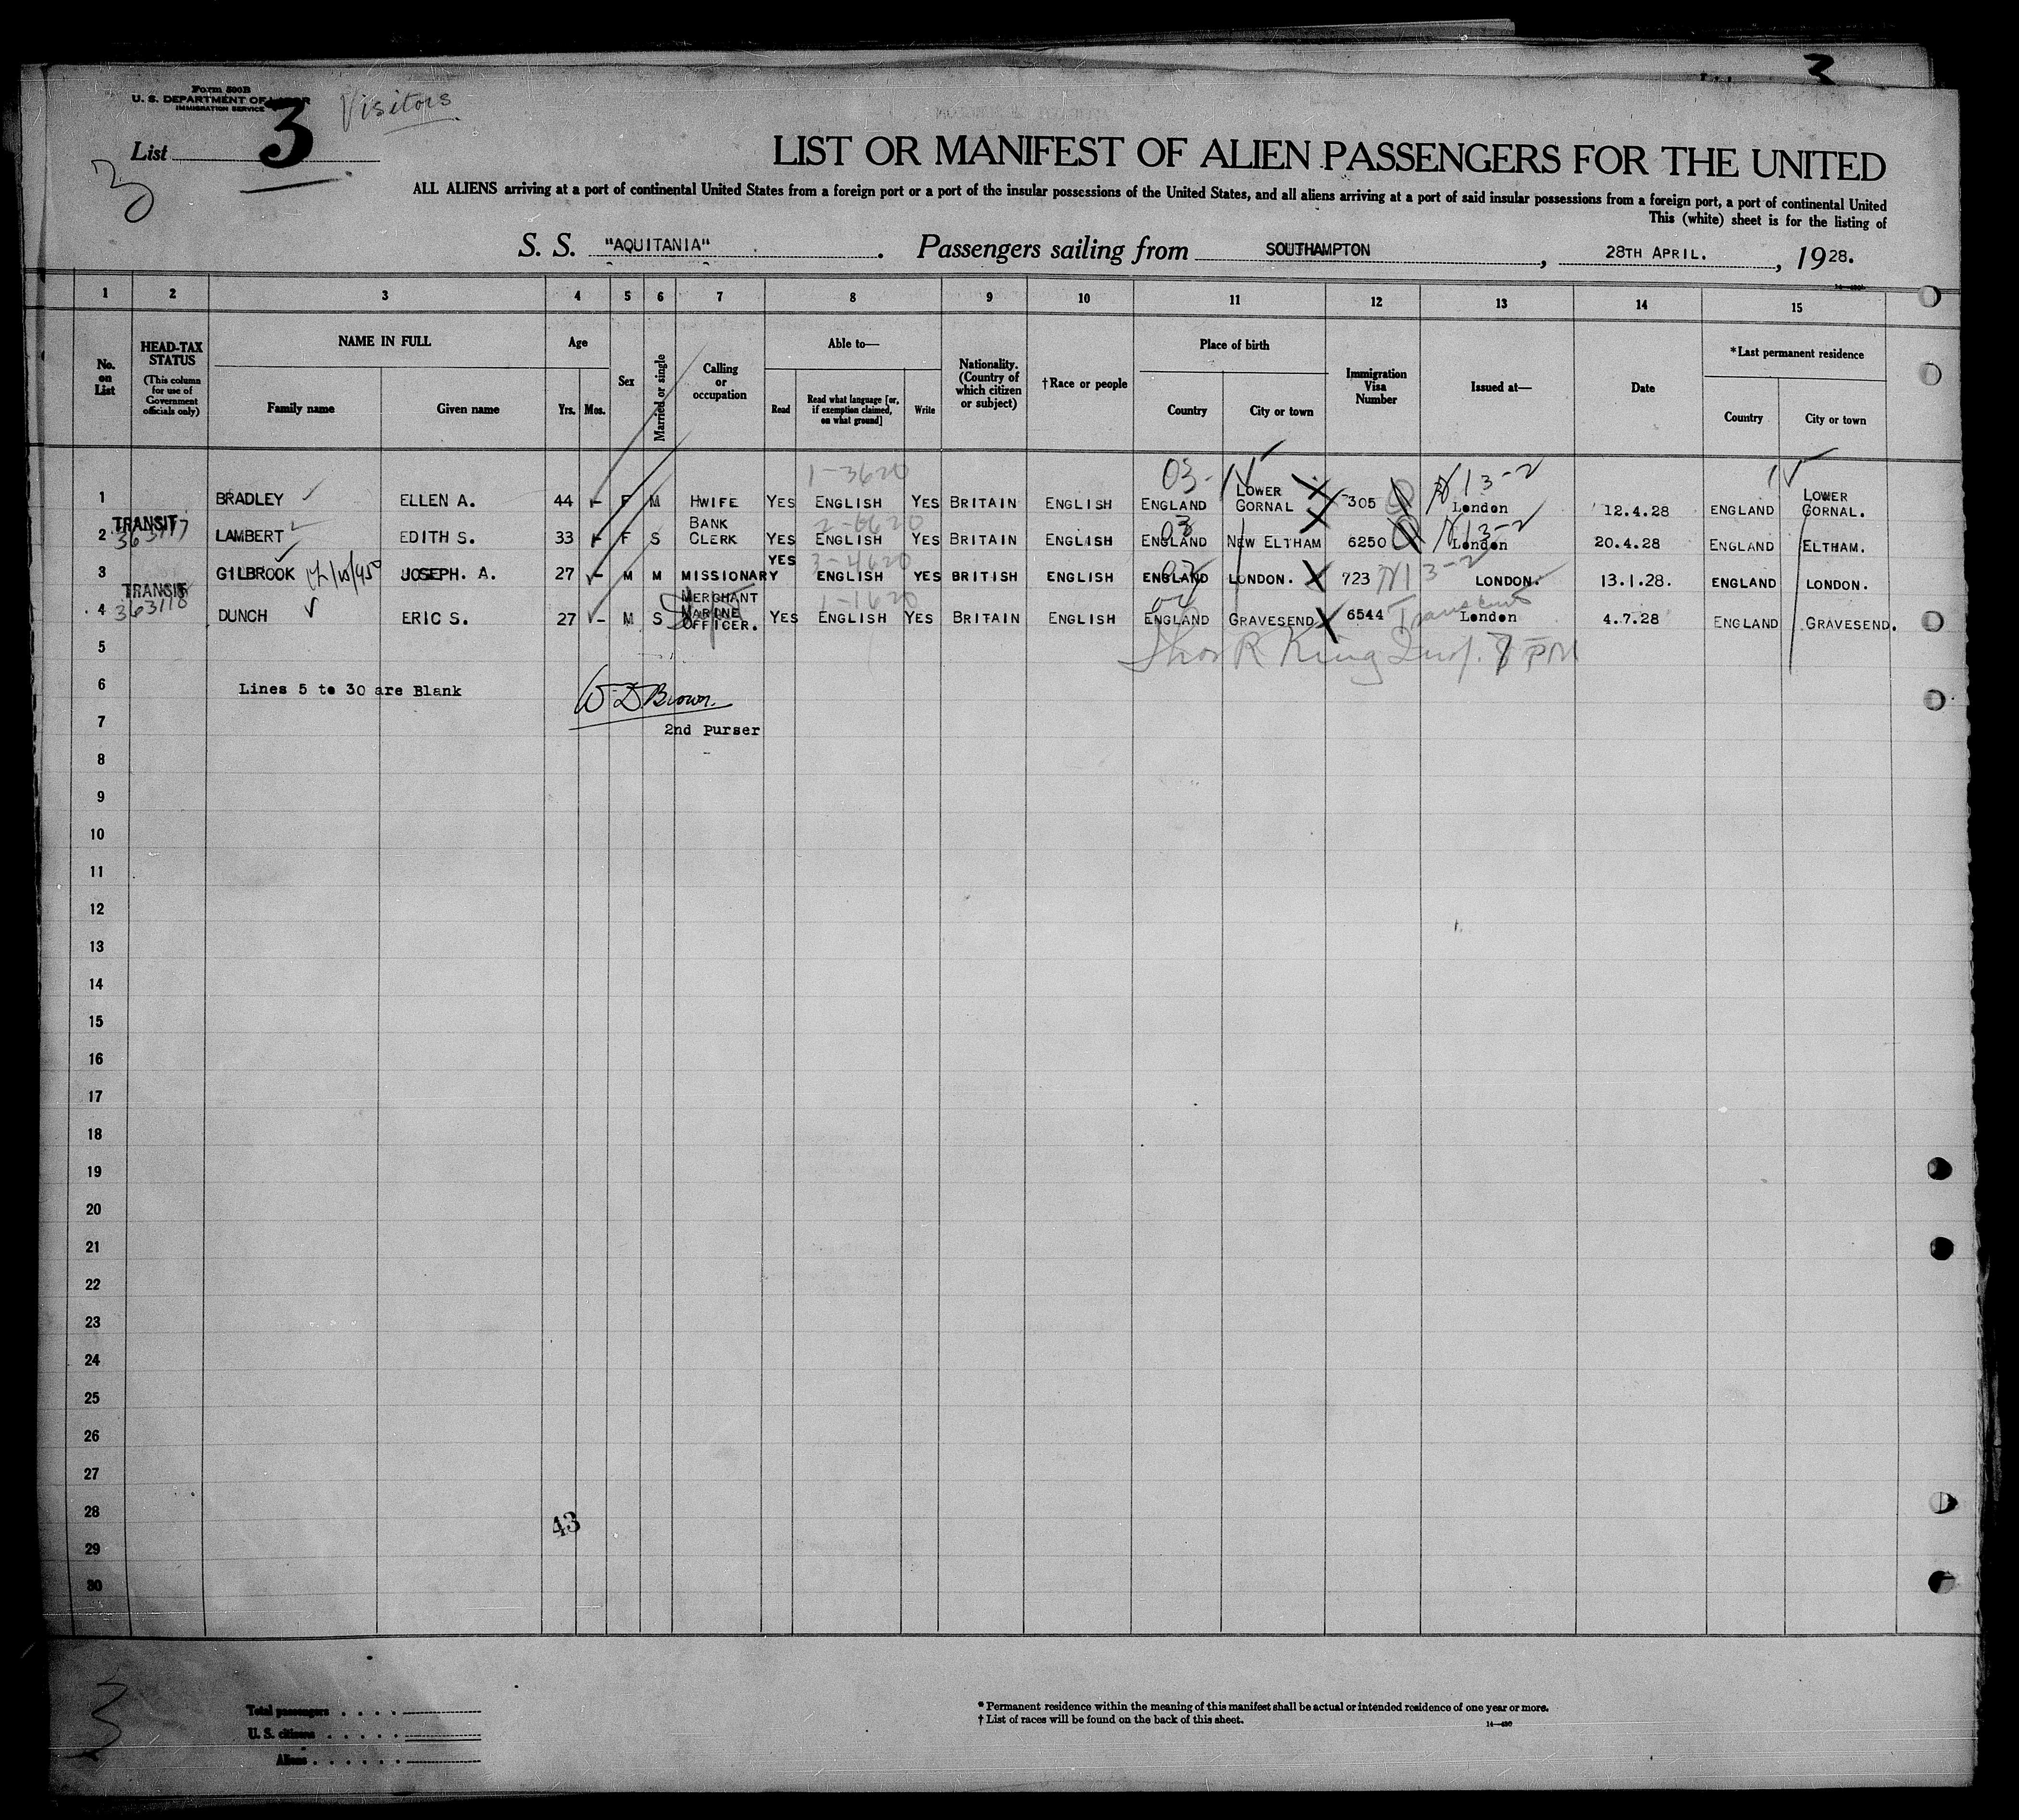 3
Form 500B
U. S. DEPARTMENT OF LABOR
IMMIGRATION SERVICE
Visitors
List 3
3
LIST OR MANIFEST OF ALIEN PASSENGERS FOR THE UNITED
ALL ALIENS arriving at a port of continental United States from a foreign port or a port of the insular possessions of the United States, and all aliens arriving at a port of said insular possessions from a foreign port, a port of continental United
This (white) sheet is for the listing of
S. S. "AQUITANIA". Passengers sailing from SOUTHAMPTON, 28TH APRIL., 1928.
1 2 3 4 5 6 7 8 9 10 11 12 13 14 15
No. on List
HEAD-TAX STATUS
(This column for use of Government officials only)
NAME IN FULL
Family name Given name
Age
Yrs. Mos.
Sex
Married or single
Calling or occupation
Able to—
Read
Read what language [or, if exemption claimed, on what ground]
Write
Nationality. (Country of which citizen or subject)
†Race or people
Place of birth
Country City or town
Immigration Visa Number
Issued at—
Date
*Last permanent residence
Country City or town
1-3620 03-
1 BRADLEY ELLEN A. 44 - F M HWIFE YES ENGLISH YES BRITAIN ENGLISH ENGLAND LOWER GORNAL 305 London 12.4.28 ENGLAND LOWER GORNAL.
13-2
TRANSIT
363117
2-6620 03
2 LAMBERT EDITH S. 33 - F S BANK CLERK YES ENGLISH YES BRITAIN ENGLISH ENGLAND NEW ELTHAM 6250 London 20.4.28 ENGLAND ELTHAM.
13-2
3-4620
3 GILBROOK JOSEPH. A. 27 - M M MISSIONARY YES ENGLISH YES BRITISH ENGLISH ENGLAND LONDON. 723 LONDON. 13.1.28. ENGLAND LONDON.
13-2
TRANSIT
363118
1-1620
4 DUNCH ERIC S. 27 - M S MERCHANT MARINE OFFICER. YES ENGLISH YES BRITAIN ENGLISH ENGLAND GRAVESEND 6544 London 4.7.28 ENGLAND GRAVESEND.
5
Thos R King Insp.
6 Lines 5 to 30 are Blank
W D Brown.
7
2nd Purser
8
9
10
11
12
13
14
15
16
17
18
19
20
21
22
23
24
25
26
27
28
43
29
30
3
Total passengers
U. S. citizens
Aliens
* Permanent residence within the meaning of this manifest shall be actual or intended residence of one year or more.
† List of races will be found on the back of this sheet.